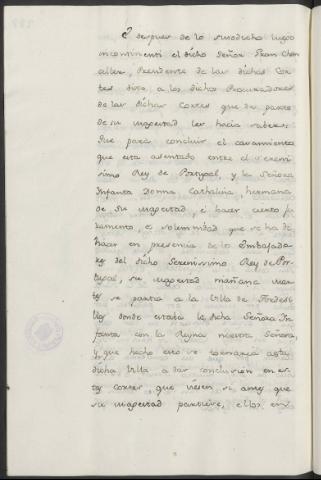 E despues de lo susodicho luego
incontinenti el dicho Señor Gran Chan
aller, Presidente de las dichas Cor
tes dixo, a los dichos Procuradores
de las dichas Cortes que de parte
de su magestad les hacia saber:
Que para concluir el casamiento
que esta asentado entre el sereni
simo Rey de Portugal, y la Señora
Infanta Donna Cathalina, hermana
de su magestad, é hacer cierto ju
ramento, é solemnidad que se ha de
hacer en presencia de lo Embajado
res del dicho Serenissimo Rey de Por
tugal, su magestad mañana mar
tes se partia a la Villa de Tordesi
llas donde estaba la dicha Señora In
fanta con la Reyna nuestra Señora,
y que hecho esto se tornaria a esta
dicha Villa a dar conclusion en es
tas cortes, que viesen si antes que
su magestad partiese, ellos en